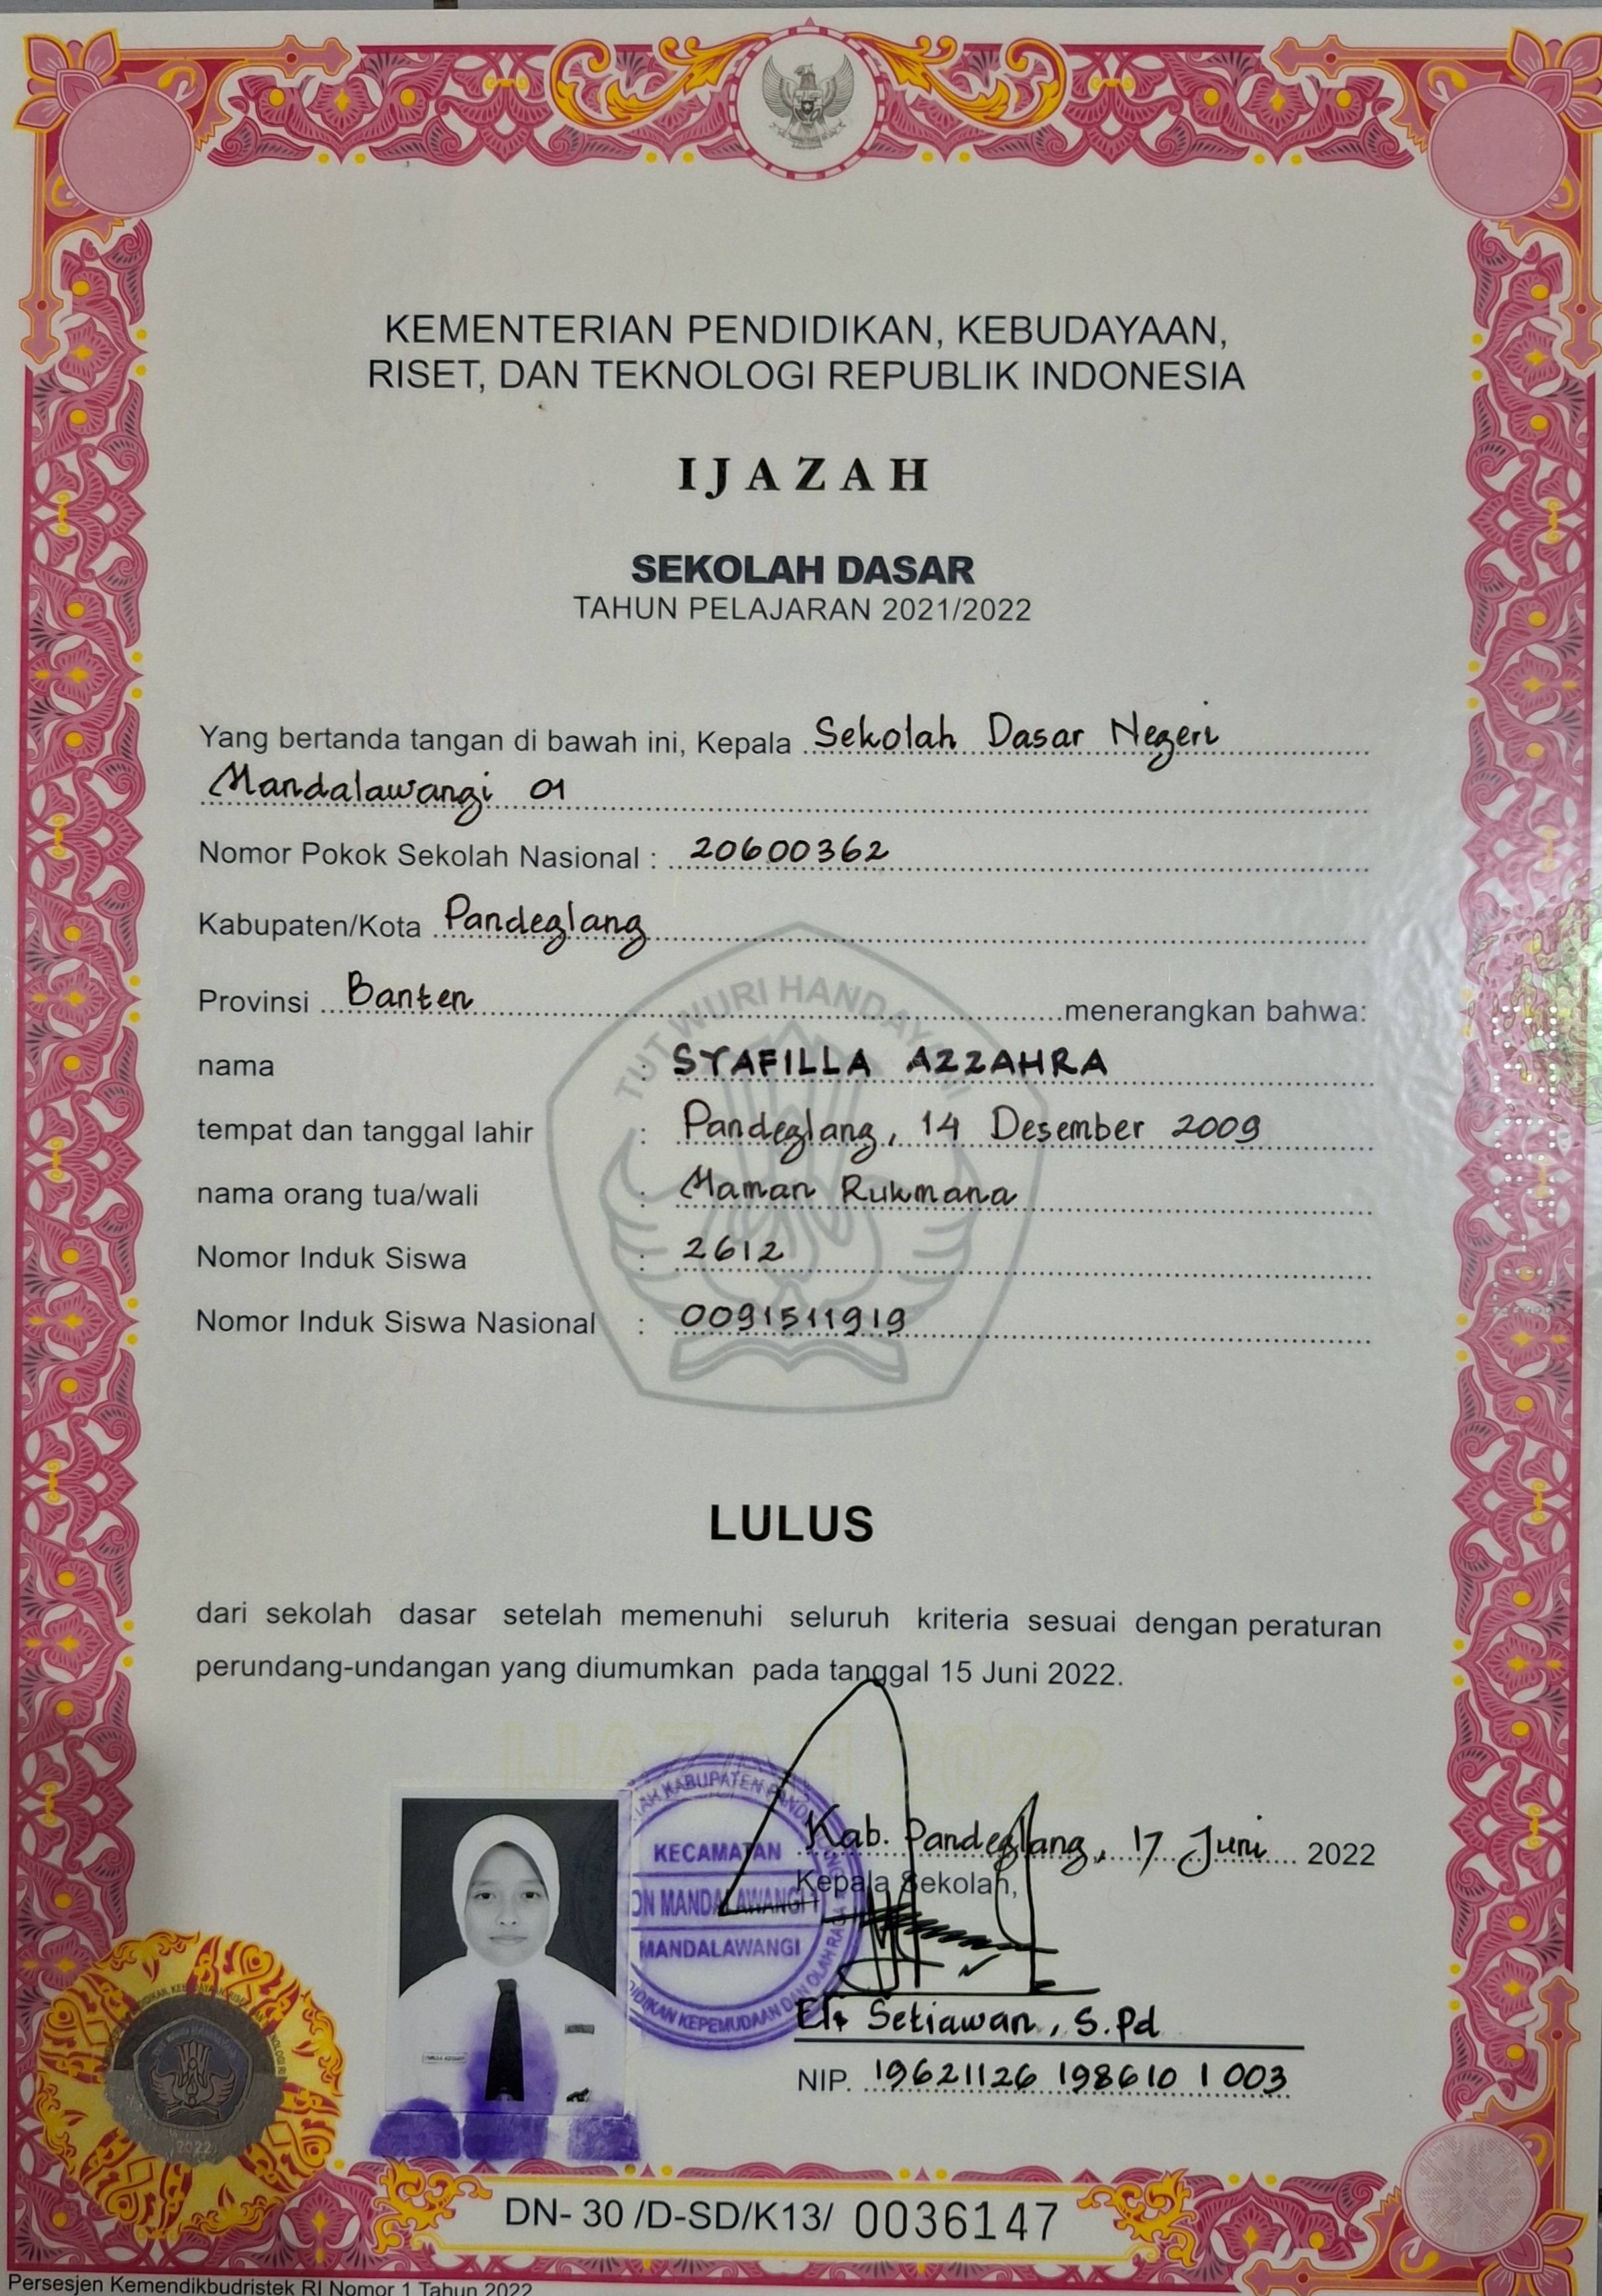 KEMENTERIAN PENDIDIKAN, KEBUDAYAAN,
RISET, DAN TEKNOLOGI REPUBLIK INDONESIA
IJAZAH
SEKOLAH DASAR
TAHUN PELAJARAN 2021/2022
Yang bertanda tangan di bawah ini, Kepala Sekolah Dasar Negeri
Mandalawangi 01
Nomor Pokok Sekolah Nasional : 20600362
Kabupaten/Kota Pandeglang
Provinsi Banten menerangkan bahwa:
TUT WURI HANDAYANI
nama : SYAFILLA AZZAHRA
tempat dan tanggal lahir : Pandeglang, 14 Desember 2009
nama orang tua/wali : Maman Rukmana
Nomor Induk Siswa : 2612
Nomor Induk Siswa Nasional : 0091511919
LULUS
dari sekolah dasar setelah memenuhi seluruh kriteria sesuai dengan peraturan
perundang-undangan yang diumumkan pada tanggal 15 Juni 2022.
IJAZAH 2022
KABUPATEN
KECAMATAN
MANDALAWANGI 1
MANDALAWANGI
KEPEMUDAAN DAN OLAH RAGA
Kab. Pandeglang, 17 Juni 2022
Kepala Sekolah,
Setiawan, S.Pd
NIP. 19621126 198610 1 003
2022
DN- 30 /D-SD/K13/ 0036147
Persesjen Kemendikbudristek RI Nomor 1 Tahun 2022